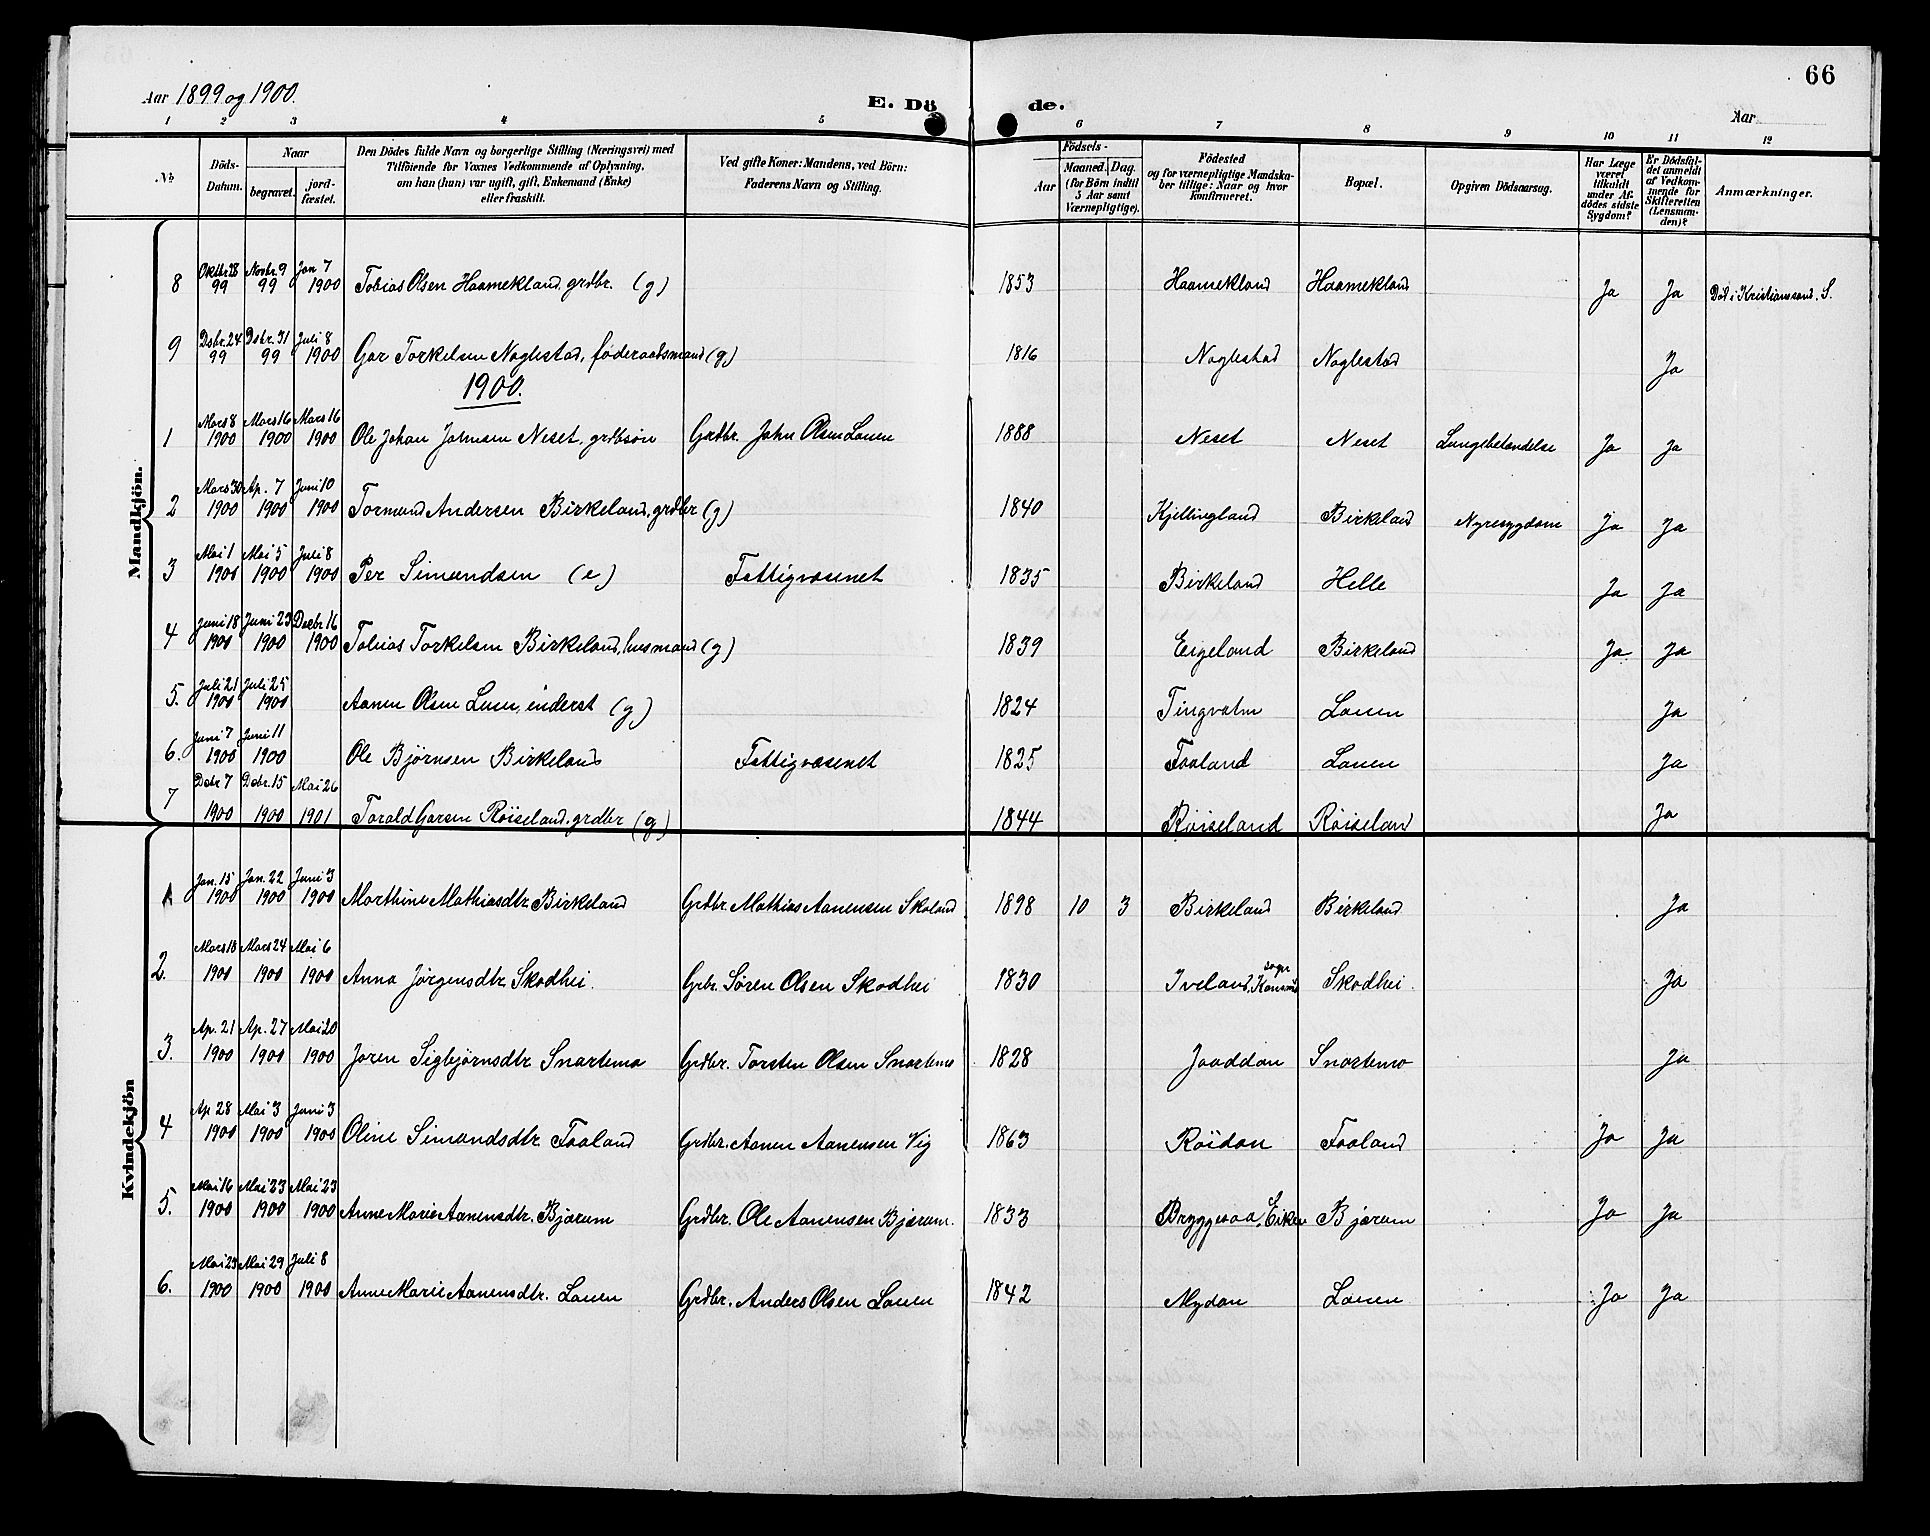 66
Aar 1899 og 1900.
E. Dö de.
Aar
1 2 3 4 5 6 7 8 9 10 11 12
No.
Döds-Datum.
Naar
begravet.
jord-fæstet.
Den Dödes fulde Navn og borgerlige Stilling (Næringsvei) med
Tilföiende for Voxnes Vedkommende af Oplysning,
om han (hun) var ugift, gift, Enkemand (Enke)
eller fraskilt.
Ved gifte Koner: Mandens, ved Börn:
Faderens Navn og Stilling.
Födsels-
Aar
Maaned. Dag.
(for Börn indtil
5 Aar samt
Værnepligtige).
Födested
og for værnepligtige Mandska-
ber tillige: Naar og hvor
konfirmeret.
Bopæl.
Opgiven Dödsaarsag.
Har Læge
været
tilkaldt
under Af-
dödes sidste
Sygdom?
Er Dödsfal-
det anmeldt
af Vedkom-
mende for
Skifteretten
(Lensman-
den)?
Anmærkninger.
Mandkjön.
8 Oktbr 28 99 Novbr. 9 99 Jan 7 1900 Tobias Olsen Haamekland, grdbr. (g) 1853 Haamekland Haamekland Ja Ja Död i Kristianssand. S.
9 Dsbr. 24 99 Dsbr. 31 99 Juli 8 1900 Gar Torkelsen Naglestad, føderaadsmand (g) 1816 Naglestad Naglestad Ja
1900.
1 Mars 8 1900 Mars 16 1900 Mars 16 1900 Ole Johan Johnsen Neset, grdbsøn Grdbr. John Olsen Lauen 1888 Neset Neset Lungebetændelse Ja Ja
2 Mars 30 1900 Ap. 7 1900 Juni 10 1900 Tormund Andersen Birkeland, grdbr (g) 1840 Kjellingland Birkeland Nyresygdom Ja Ja
3 Mai 1 1900 Mai 5 1900 Juli 8 1900 Per Simundsen (e) Fattigvæsenet 1835 Birkeland Helle Ja Ja
4 Juni 18 1900 Juni 23 1900 Decbr 16 1900 Tobias Torkelsen Birkeland, husmand (g) 1839 Eigeland Birkeland Ja Ja
5. Juli 21 1900 Juli 25 1900 Aanen Olsen Lauen, inderst (g) 1824 Tingvatn Lauen Ja
6. Juni 7 1900 Juni 11 1900 Ole Bjørnsen Birkeland Fattigvæsenet 1825 Faaland Lauen Ja
7 Debr 7 1900 Debr. 15 1900 Mai 26 1901 Torald Garsen Røiseland, grdbr (g) 1844 Røiseland Røiseland Ja
Kvindekjön
1 Jan. 15 1900 Jan. 22 1900 Juni 3 1900 Marthine Mathiasdtr. Birkeland Grdbr Mathias Aanensen Skaland 1898 10 3 Birkeland Birkeland Ja
2. Mars 18 1900 Mars 24 1900 Mai 6 1900 Anna Jørgensdtr. Skodhei. Grbr. Søren Olsen Skodhei 1830 Iveland, sogn Skodhei. Ja
3. Ap. 21 1900 Ap. 27 1900 Mai 20 1900 Joren Sigbjørnsdtr Snartemo Grdbr. Torsten Olsen Snartemo 1828 Jaaddan Snartemo Ja
4 Ap 28 1900 Mai 3 1900 Juni 3 1900 Oline Simundsdtr. Faaland Grdbr. Aanen Aanensen Vig 1863 Røidan Faaland Ja Ja
5. Mai 16 1900 Mai 23 1900 Mai 23 1900 Anne Marie Aanensdtr. Bjærum Grdbr. Ole Aanensen Bjærum. 1833 Bryggesaa, Eiken Bjærum Ja Ja
6. Mai 23 1900 Mai 29 1900 Juli 8 1900 Anne Marie Aanensdtr. Lauen Grdbr. Anders Olsen Lauen 1842 Mydan Lauen Ja Ja